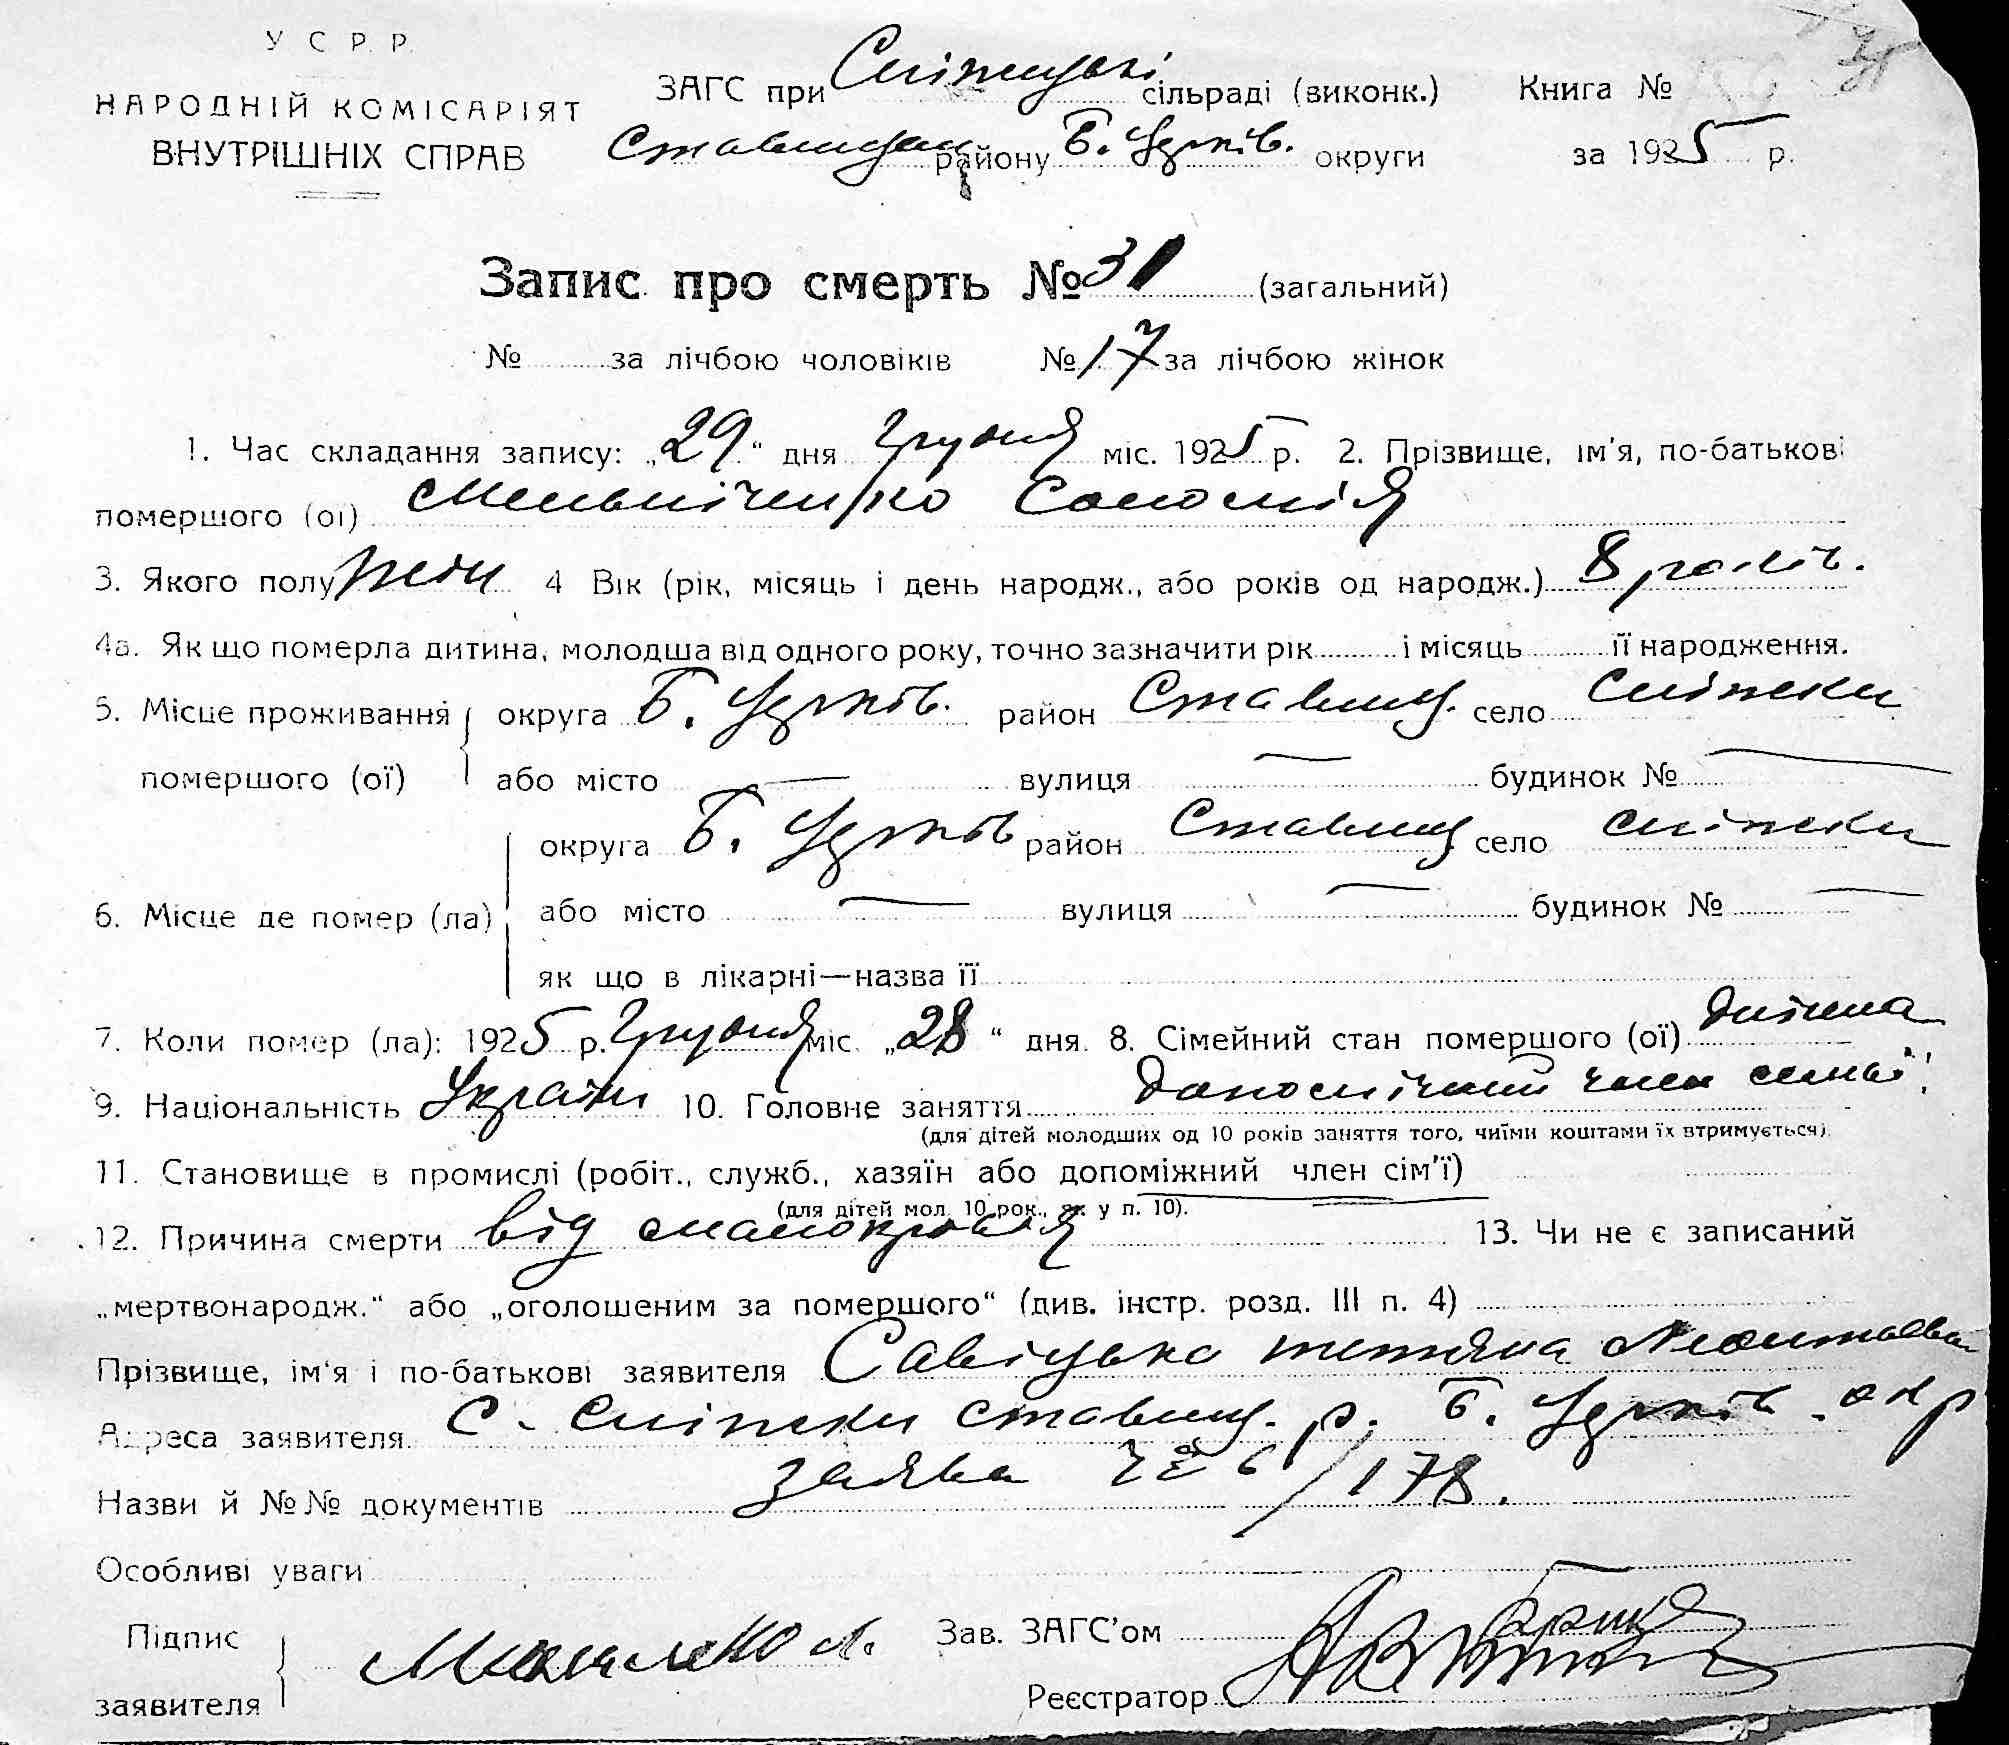 У С Р Р.
НАРОДНІЙ КОМІСАРІЯТ
ВНУТРІШНІХ СПРАВ
ЗАГС при сільраді (виконк.) Книга №
Ставищан району Б. Церків. округи за 1925 р.
Запис про смерть № 31 (загальний)
№ за лічбою чоловіків № 17 за лічбою жінок
1. Час складання запису: „29“ дня Грудня міс. 1925 р. 2. Прізвище, ім'я, по-батькові
помершого (ої) Мельніченко Соломія
3. Якого полу жін 4 Вік (рік, місяць і день народж., або років од народж.) 8 років.
4а. Як що померла дитина, молодша від одного року, точно зазначити рік і місяць її народження.
5. Місце проживання округа Б. Церків. район Ставищ. село Сніжки
помершого (ої) або місто — вулиця — будинок № —
округа Б. Церків район Ставищ село Сніжки
6. Місце де помер (ла) або місто — вулиця — будинок № —
як що в лікарні—назва її
7. Коли помер (ла): 1925 р. Грудня міс. „28“ дня. 8. Сімейний стан помершого (ої) дитина
9. Національність Україн 10. Головне заняття допомічний член семьї
(для дітей молодших од 10 років заняття того, чиїми коштами їх втримується).
11. Становище в промислі (робіт., служб., хазяїн або допоміжний член сім'ї)
(для дітей мол. 10 рок., як у п. 10).
12. Причина смерти від малокровія 13. Чи не є записаний
„мертвонародж.“ або „оголошеним за помершого“ (див. інстр. розд. III п. 4)
Прізвище, ім'я і по-батькові заявителя Савіцька Тетяна Леонтьєва
Адреса заявителя С. Сніжки Ставищ. р. Б. Церків. окр
Назви й №№ документів заява 178.
Особливі уваги
Підпис
заявителя
Зав. ЗАГС'ом
Реєстратор